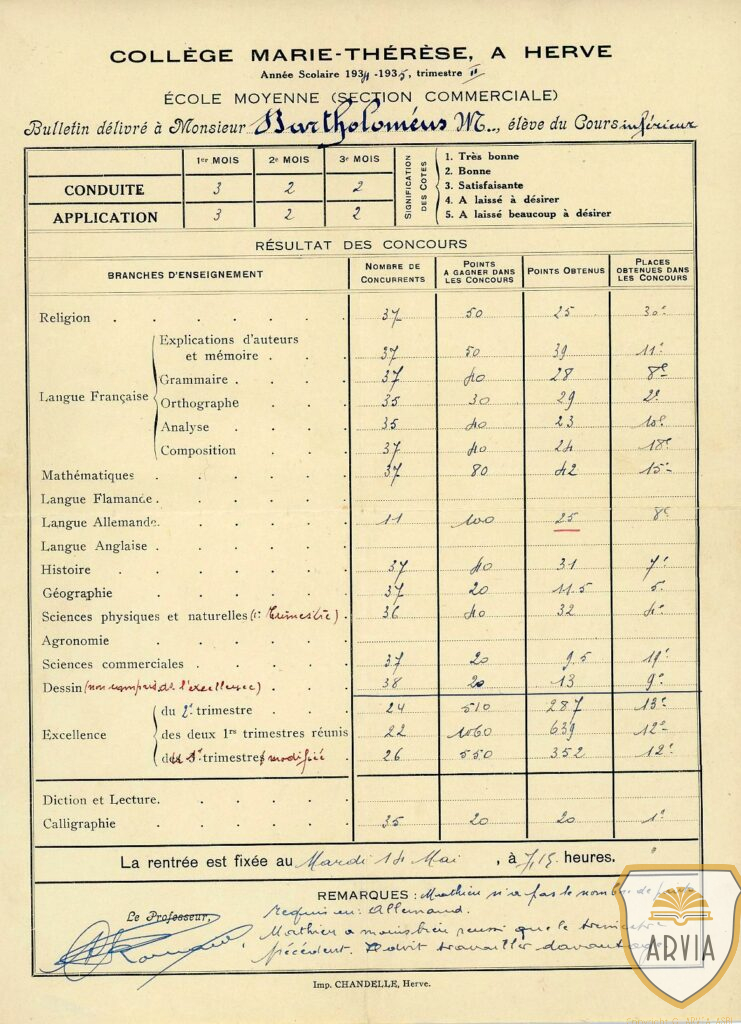 COLLÈGE MARIE-THÉRÈSE, A HERVE
Année Scolaire 1934-1935, trimestre II
ÉCOLE MOYENNE (SECTION COMMERCIALE)
Bulletin délivré à Monsieur Bartholoméus M.., élève du Cours inférieur
1er MOIS 2e MOIS 3e MOIS
CONDUITE 3 2 2
APPLICATION 3 2 2
SIGNIFICATION DES COTES
1. Très bonne
2. Bonne
3. Satisfaisante
4. A laissé à désirer
5. A laissé beaucoup à désirer
RÉSULTAT DES CONCOURS
BRANCHES D'ENSEIGNEMENT NOMBRE DE CONCURRENTS POINTS A GAGNER DANS LES CONCOURS POINTS OBTENUS PLACES OBTENUES DANS LES CONCOURS
Religion . . . . . . 37 50 25 30e
Langue Française
Explications d'auteurs et mémoire . . 37 50 39 11e
Grammaire . . . . 37 40 28 8e
Orthographe . . . 35 30 29 2e
Analyse . . . . 35 40 23 10e
Composition . . . 37 40 24 18e
Mathématiques . . . . . 37 80 42 15e
Langue Flamande . . . . .
Langue Allemande . . . . . 11 100 25 8e
Langue Anglaise . . . . .
Histoire . . . . . 37 40 31 7e
Géographie . . . . . 37 20 11.5 5e
Sciences physiques et naturelles (1r trimestre) . 36 40 32 4e
Agronomie . . . . .
Sciences commerciales . . . . 37 20 9.5 19e
Dessin (non compris de l'excellence) . . 38 20 13 9e
Excellence
du 2e trimestre . . . 24 510 287 13e
des deux 1rs trimestres réunis 22 1060 639 12e
trimestre modifiée . 26 550 352 12e
Diction et Lecture . . . . .
Calligraphie . . . . . 35 20 20 1e
La rentrée est fixée au Mardi 14 Mai , à 7,15 heures.
REMARQUES : Mathieu n'a pas le nombre de
Le Professeur,
requis en : Allemand.
Mathieu a moins bien réussi que le trimestre
précédent. doit travailler
Imp. CHANDELLE, Herve.
ARVIA